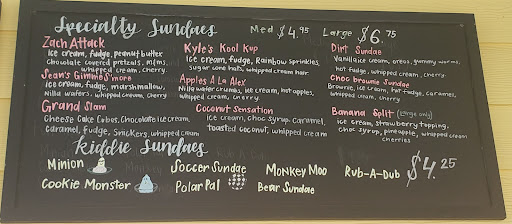 Specialty Sundaes Med $4.95 Large $6.75
Zach Attack
Ice cream, fudge, peanut butter
Chocolate covered pretzels, m/ms,
whipped cream, cherry
Jean's Gimme S'more
Ice cream, fudge, marshmallow,
Nilla wafers, whipped cream, cherry
Grand Slam
Cheese Cake Cubes, Chocolate ice cream,
caramel, fudge, Snickers, whipped cream
Kyle's Kool Kup
Ice cream, fudge, Rainbow sprinkles,
sugar cone hats, whipped cream hair
Apples A La Alex
Nilla wafer crumbs, ice cream, hot apples,
whipped cream, cherry
Coconut Sensation
Ice cream, choc syrup, caramel,
toasted coconut, whipped cream
Dirt Sundae
Vanilla ice cream, oreos, gummy worms,
hot fudge, whipped cream, cherry
Choc Brownie Sundae
Brownie, ice cream, hot fudge, caramel,
whipped cream, cherry
Banana Split (Large only)
ice cream, strawberry topping,
choc syrup, pineapple, whipped cream
cherries
Kiddie Sundaes
Minion Soccer Sundae Monkey Moo Rub-A-Dub $4.25
Cookie Monster Polar Pal Bear Sundae